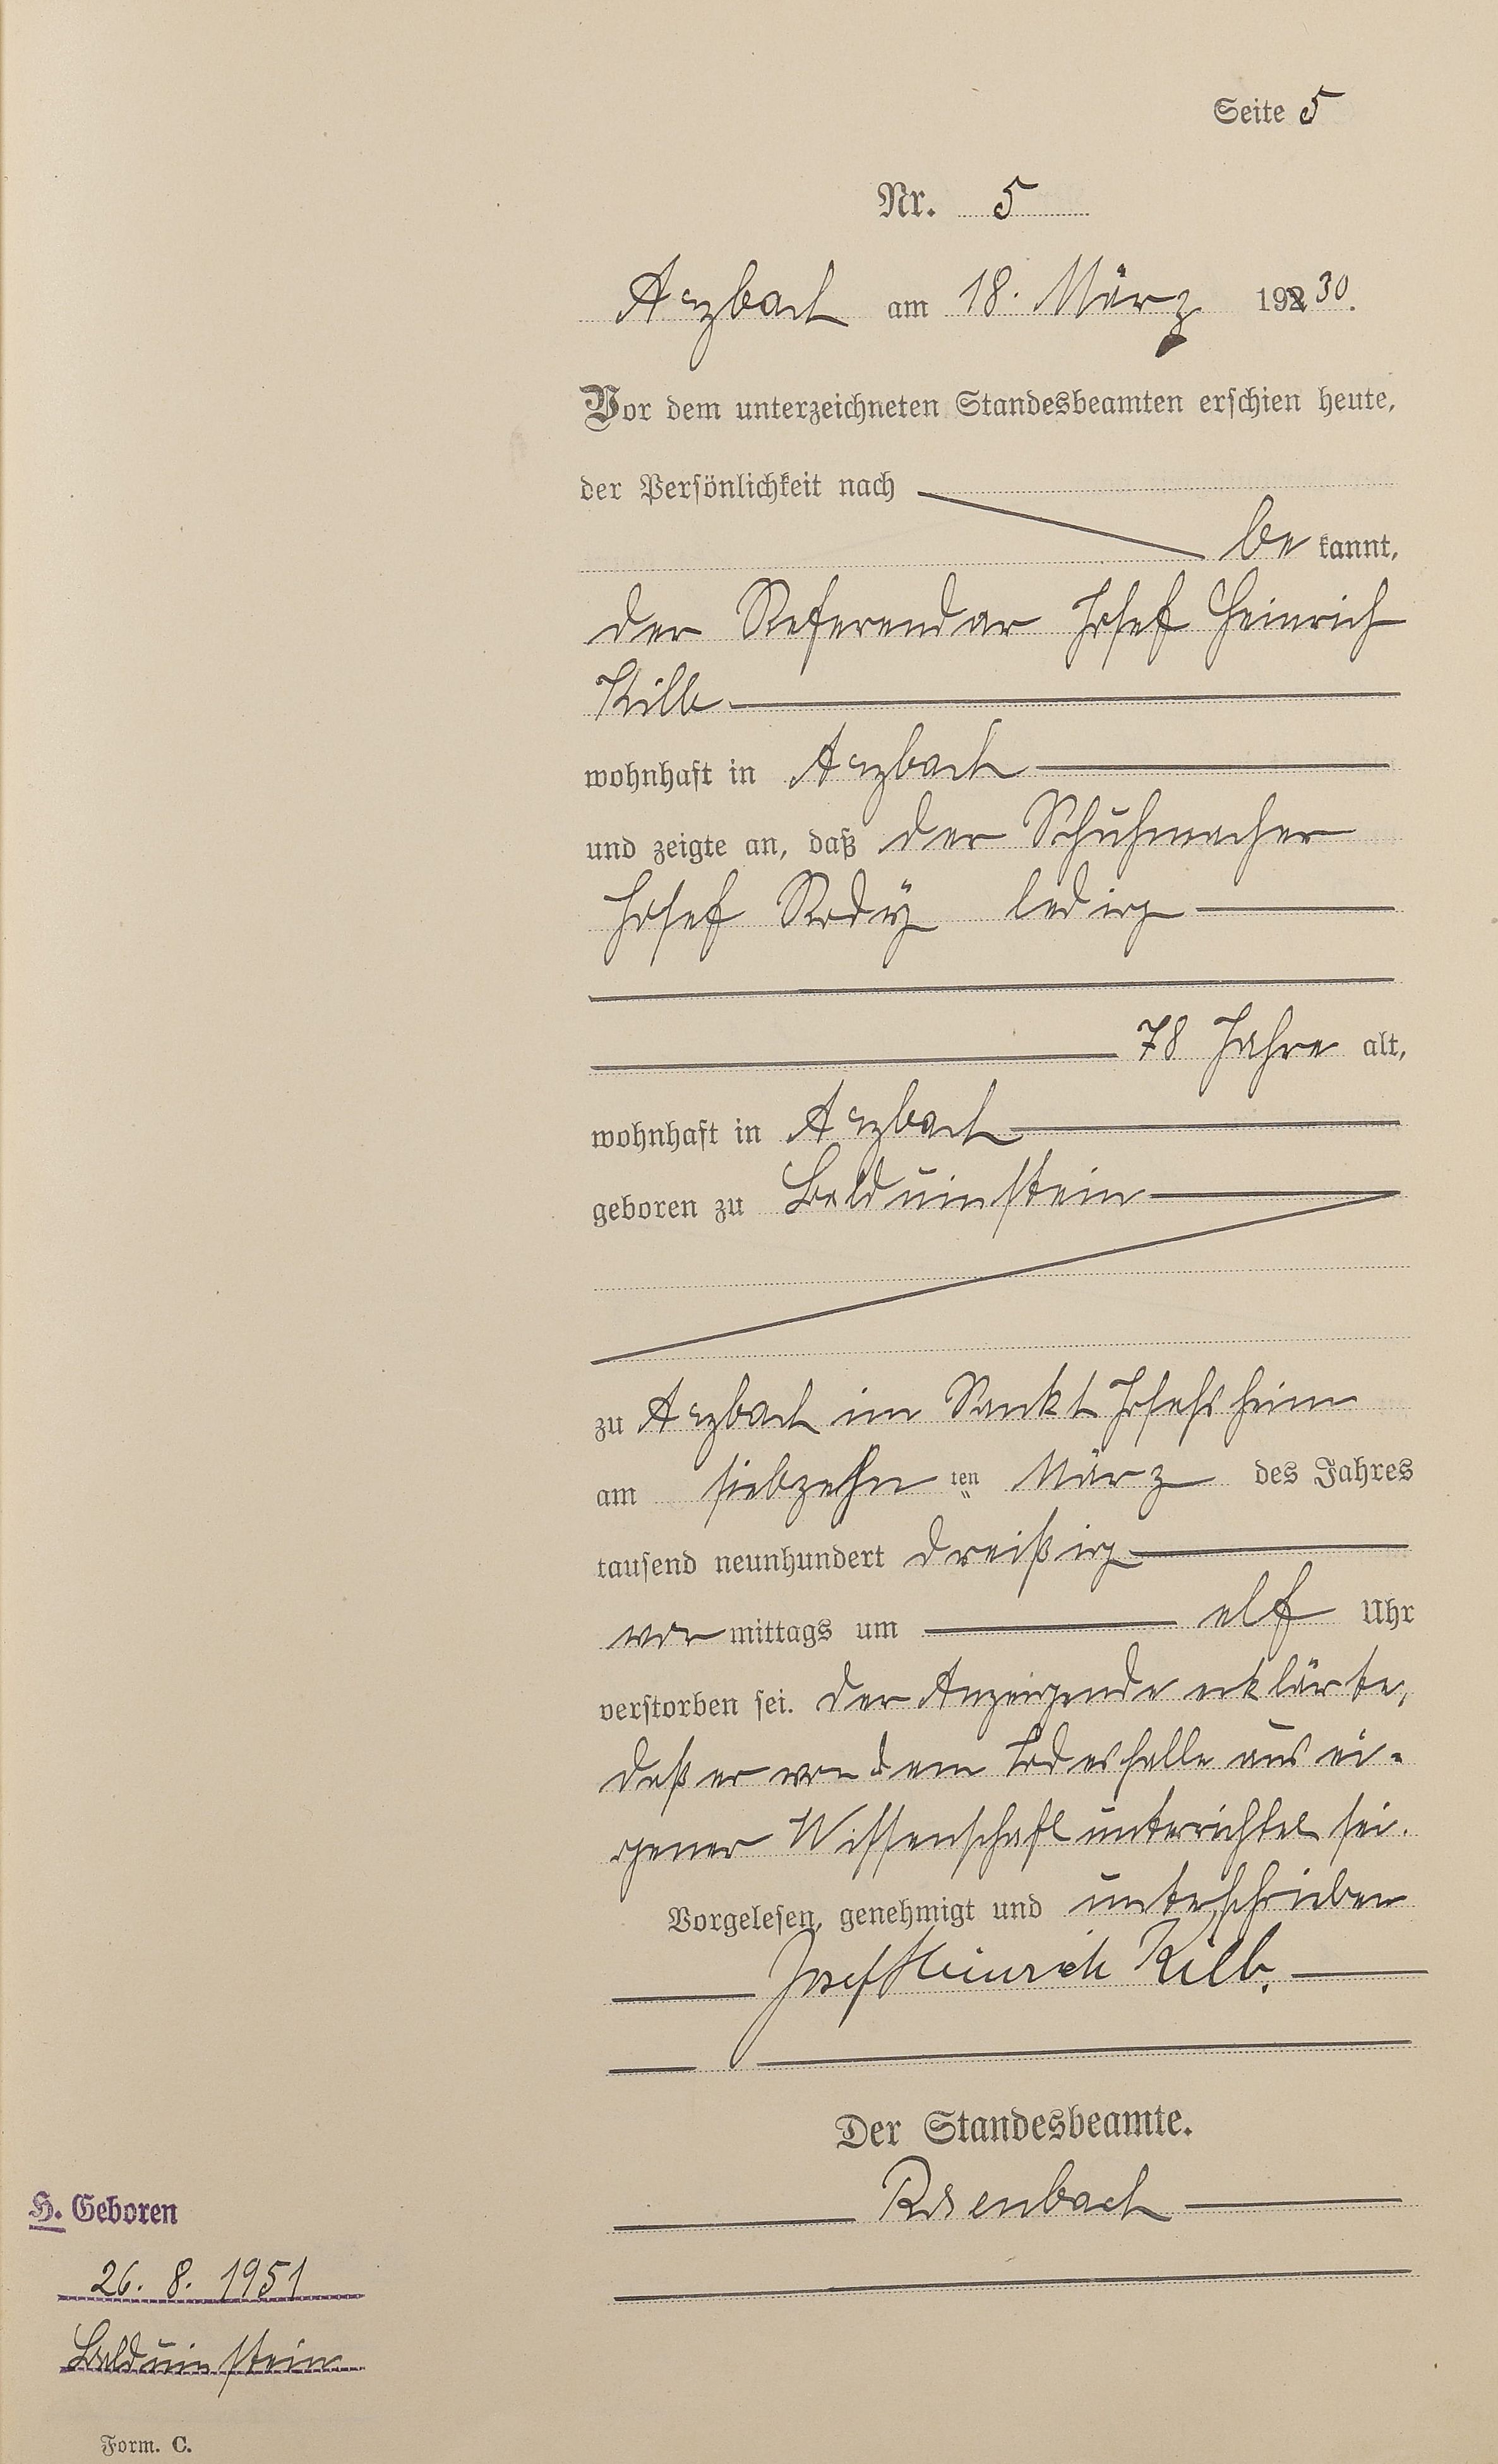 Seite 5
Nr. 5
Arzbach am 18. März 19230.
Vor dem unterzeichneten Standesbeamten erschien heute,
der Persönlichkeit nach
be kannt,
der Referendar Josef Heinrich
Kilb
wohnhaft in Arzbach
und zeigte an, daß der Schuhmacher
Josef Rody ledig
78 Jahre alt,
wohnhaft in Arzbach
geboren zu Balduinstein
zu Arzbach im Sankt Josefsheim
am siebzehn ten März des Jahres
tausend neunhundert dreißig
vor mittags um elf Uhr
verstorben sei. Der Anzeigende erklärte,
daß er von dem Todesfalle aus ei-
gener Wissenschaft unterrichtet sei.
Vorgelesen, genehmigt und unterschrieben
Josef Heinrich Kilb.
Der Standesbeamte.
Rosenbach
H. Geboren
26. 8. 1951
Balduinstein
Form. C.